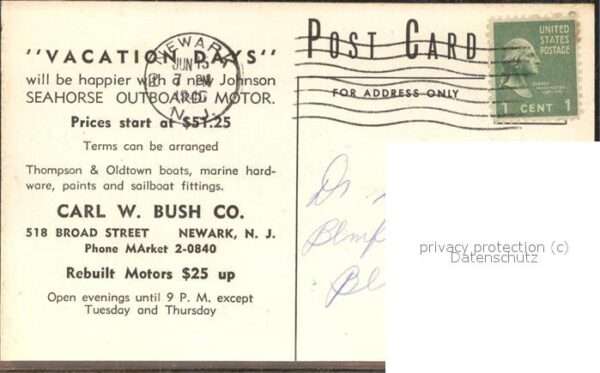 "VACATION DAYS"
will be happier with a new Johnson
SEAHORSE OUTBOARD MOTOR.
Prices start at $51.25
Terms can be arranged
Thompson & Oldtown boats, marine hard-
ware, paints and sailboat fittings.
CARL W. BUSH CO.
518 BROAD STREET NEWARK, N. J.
Phone MArket 2-0840
Rebuilt Motors $25 up
Open evenings until 9 P. M. except
Tuesday and Thursday
NEWARK
JUN 13
7 PM
N. J.
POST CARD
FOR ADDRESS ONLY
UNITED
STATES
POSTAGE
1 CENT 1
Dr
privacy protection (c)
Datenschutz